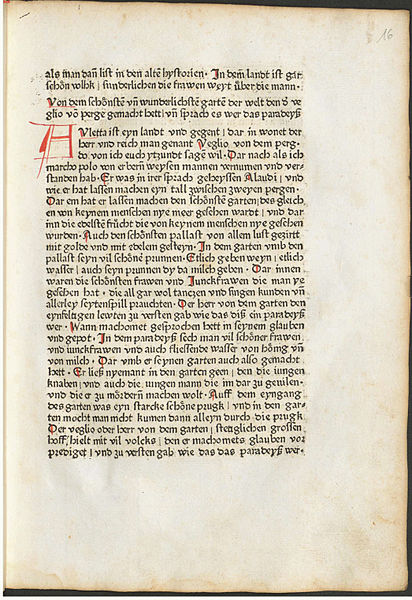 16
als man dañ list in den altẽ hystorien · In dem landt ist gar
schön volhk / sunderlichen die frawen weyt über die mann ·
Von dem schönstẽ vñ wunderlichstẽ gartẽ der welt den ð ve
glio võ perge gemacht hett / vñ sprach es wer das paradeyß
Auletta ist eyn landt vnd gegent / dar in wonet der
herr vnd reich man genant Veglio von dem perg ·
do von ich euch ytzundt sagẽ wil · Dar nach als ich
marcho polo von erbern weysen mannen vernumen vnd ver-
standen hab · Er was in irer sprach geheyssen Aluðdi / vnd
wie er hat lassen machen eyn tall zwischen zweyen pergen ·
Dar em hat er lassen machen den schönstẽ gartẽ / des gleich
en von keynem menschen nye meer gesehen wardt / vnd dar
inn die edelstẽ frücht die von keynem menschen nye gesehen
wurden · Auch den schönstẽn pallast von allem lust gezirt
mit golde vnd mit edelem gesteyn · In dem garten vmb den
pallast seyn vil schöne prunnen · Etlich geben weyn / etlich
wasser / auch seyn prunnen dy da milch geben · Dar innen
waren die schönsten frawen vnd Junckfrawen die man ye
gesehen hat · die all gar wol tanczen vnd singen kunden vñ
allerley seytenspill prauchten · Der herr von dem garten den
eynfeltigen lewten zu versten gab wie das diß ein paradeyß
wer · Wann machomet gesprochen hett in seynem glauben
vnd gepot · In dem paradeyß sech man vil schöner frawen
vnd iunckfrawen vnd auch fliessende wasser von hönig vñ
von milch · Dar vmb er seynen garten auch also gemacht
hett · Er ließ nyemant in den garten geen / den die iungen
knaben / vnd auch die iungen mann die im dar zu geuilen ·
vnd die er zu mördern machen wolt · Auff dem eyngang
des garten was eyn starcke schöne prugk / vnd in den gar-
ten mocht man nicht kumen dann alleyn durch die prugk
Der veglio oder herr von dem garten / stetiglichen grossen
hoff / hielt mit vil volcks / den er machomets glauben vor
prediget / vnd zu versten gab wie das das paradeyß wer ·